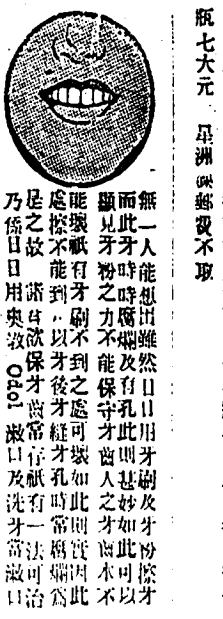 瓶七大元　星洲　郵費不取
無一人能想出雖然日日用牙刷及牙粉擦牙
而此牙時時腐爛及有孔此則甚妙如此可以
顯見牙粉之力不能保守牙齒人之牙齒永不
能壞祇有牙刷不到之處可壞如此則實因此
處擦不能到所以牙後牙縫牙孔時常腐爛爲
是之故　諸君欲保牙齒常存祇有一法可治
乃係日日用奥敦 Odol 漱口及洗牙當漱口